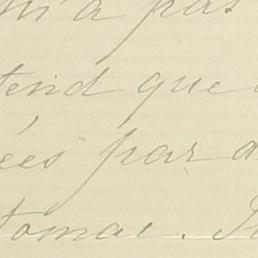 m'a pas
tend que
ées par d
tomac.